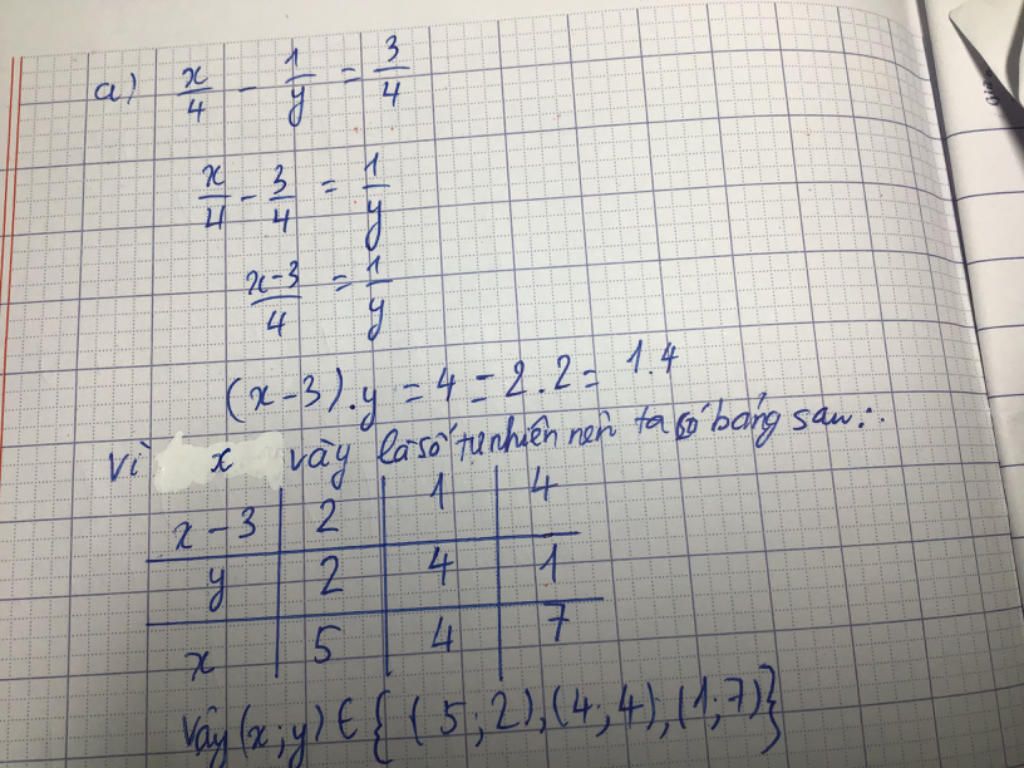 a) x/4 - 1/y = 3/4
x/4 - 3/4 = 1/y
x-3/4 = 1/y
(x-3).y = 4 = 2.2 = 1.4
Vì x vày là số tự nhiên nên ta có bảng sau:
x-3 2 1 4
y 2 4 1
x 5 4 7
Vậy (x;y) ∈ {(5;2),(4;4),(1;7)}